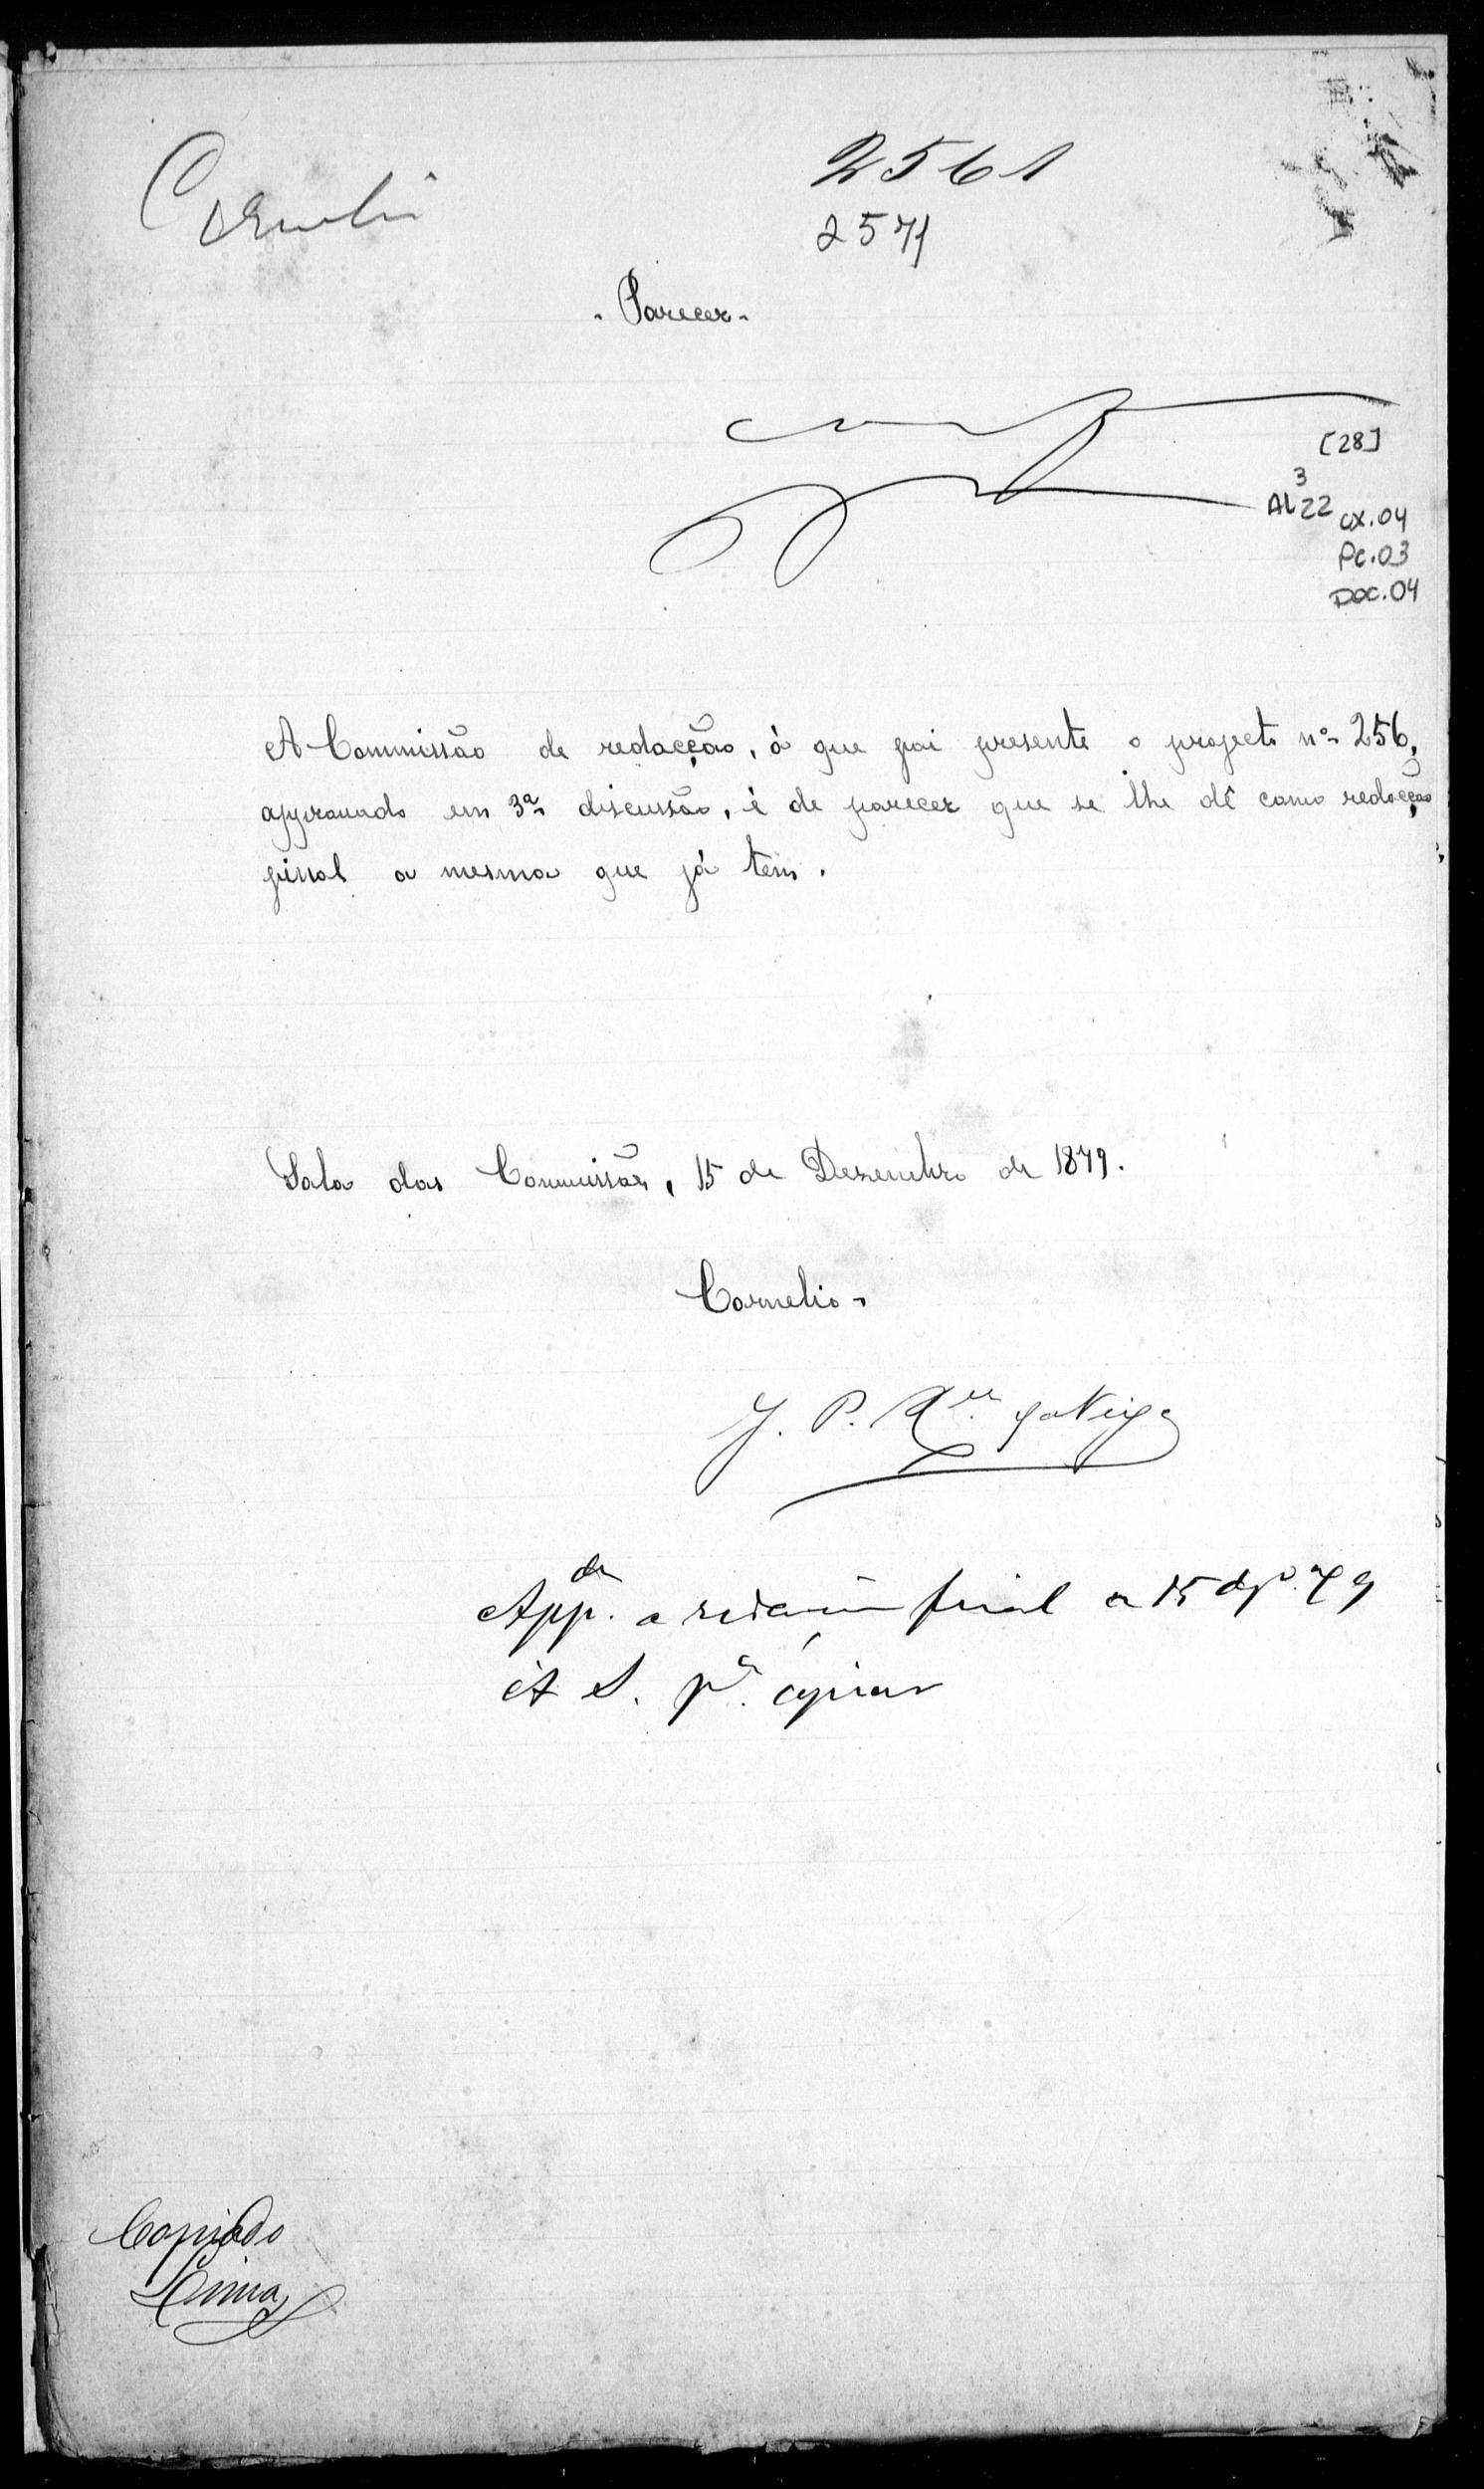 2561
2571
- Parecer -
[28]
3
AL22 CX.04
Pc.03
DOC.04
A Commissão de redacção, á que foi presente o projecto nº 256,
approvado em 3ª discussão, é de parecer que se lhe dê como redacção
final a mesma que já tem.
Sala das Commissões, 15 de Dezembro de 1879.
Cornelio -
J. P. X.er da Veiga
App.da a redacção final a 15 dzº. 79
Á S. pª. copiar
Copiado
Lima